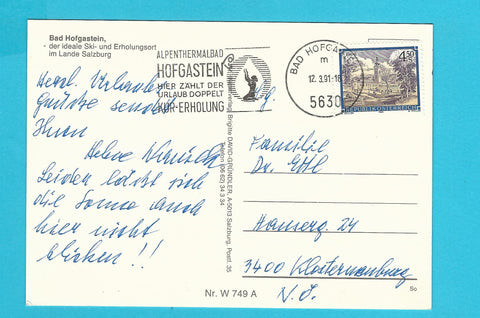 Bad Hofgastein,
- der ideale Ski- und Erholungsort
im Lande Salzburg
ALPENTHERMALBAD
HOFGASTEIN
HIER ZÄHLT DER
URLAUB DOPPELT
KUR-ERHOLUNG
BAD HOFGASTEIN
m
12.3.91-18
5630
4.50
REPUBLIK ÖSTERREICH
Herzl. Urlaubs
Grüße sendet
Ihnen
Helene
Leider läßt sich
die Sonne auch
hier nicht
blicken!!
Verlag Brigitte DAVID-GRÜNDLER, A-5013 Salzburg, Postf. 35
Telefon (06 62) 34 3 34
Familie
Dr. Ettl
24
3400 Klosterneuburg
N.Ö.
Nr. W 749 A
So